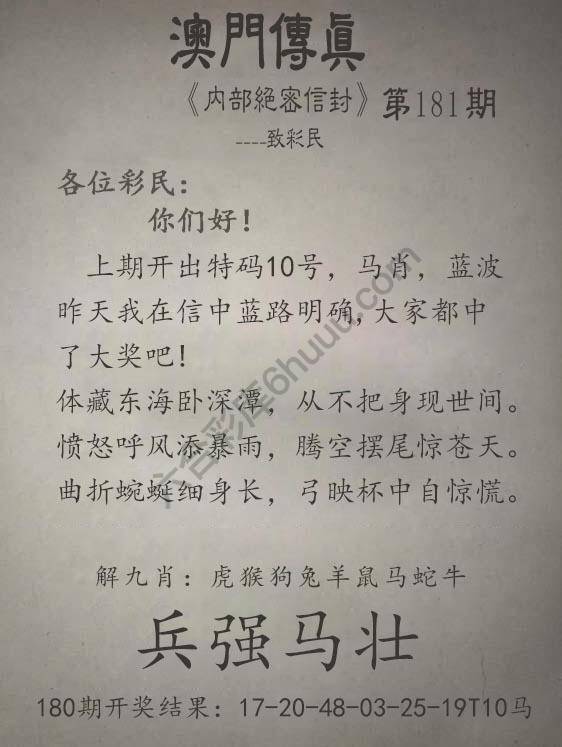 澳門傳真
《内部絕密信封》第181期
----致彩民
各位彩民：
你们好！
上期开出特码10号，马肖，蓝波
昨天我在信中蓝路明确,大家都中
了大奖吧！
体藏东海卧深潭，从不把身现世间。
愤怒呼风添暴雨，腾空摆尾惊苍天。
曲折蜿蜒细身长，弓映杯中自惊慌。
解九肖：虎猴狗兔羊鼠马蛇牛
兵强马壮
180期开奖结果：17-20-48-03-25-19T10马
六合彩库6huuu.com